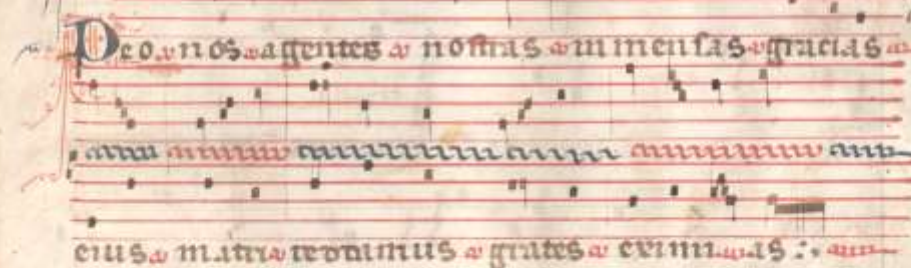 Deo nos agentes nostras inmensas gracias
eius matri reddimus grates eximias